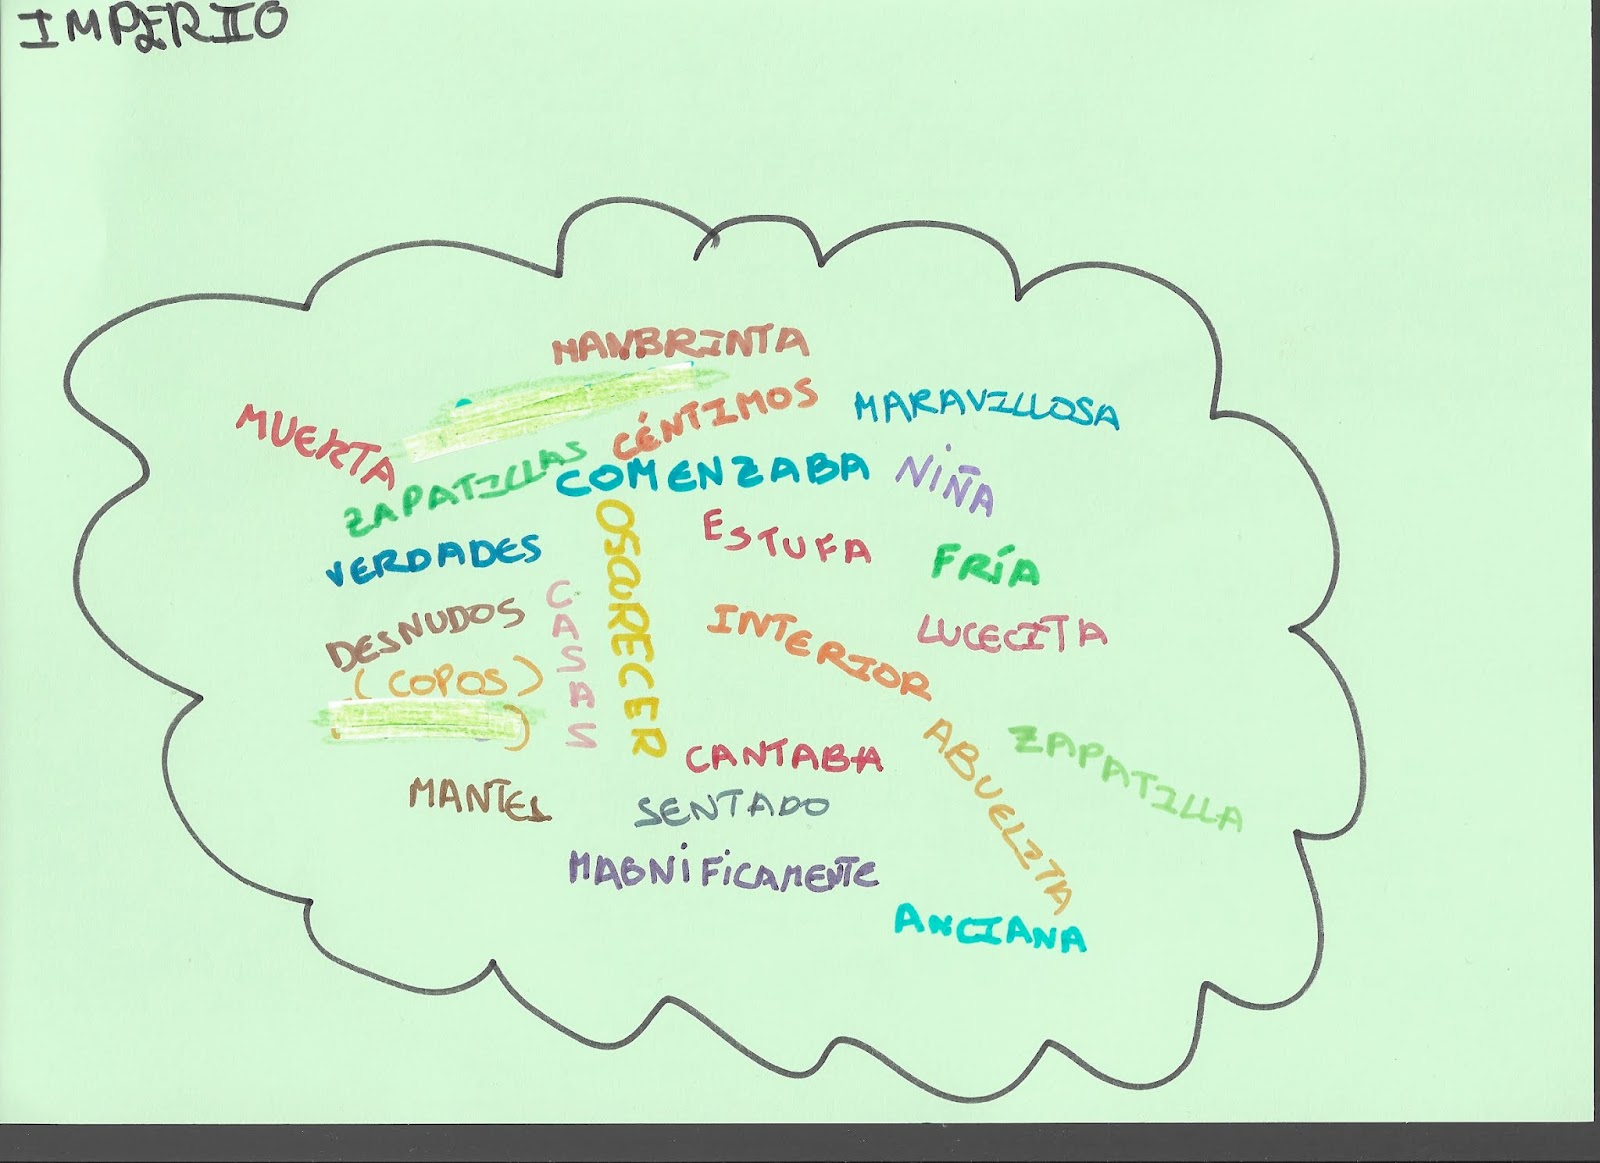 IMPERIO
HANBRINTA
CÉNTIMOS
MARAVILLOSA
MUERTA
ZAPATILLAS
COMENZABA
NIÑA
VERDADES
OSCURECER
ESTUFA
FRÍA
DESNUDOS
CASAS
INTERIOR
LUCECITA
(COPOS)
)
CANTABA
ABUELITA
ZAPATILLA
MANTEL
SENTADO
MAGNIFICAMENTE
ANCIANA